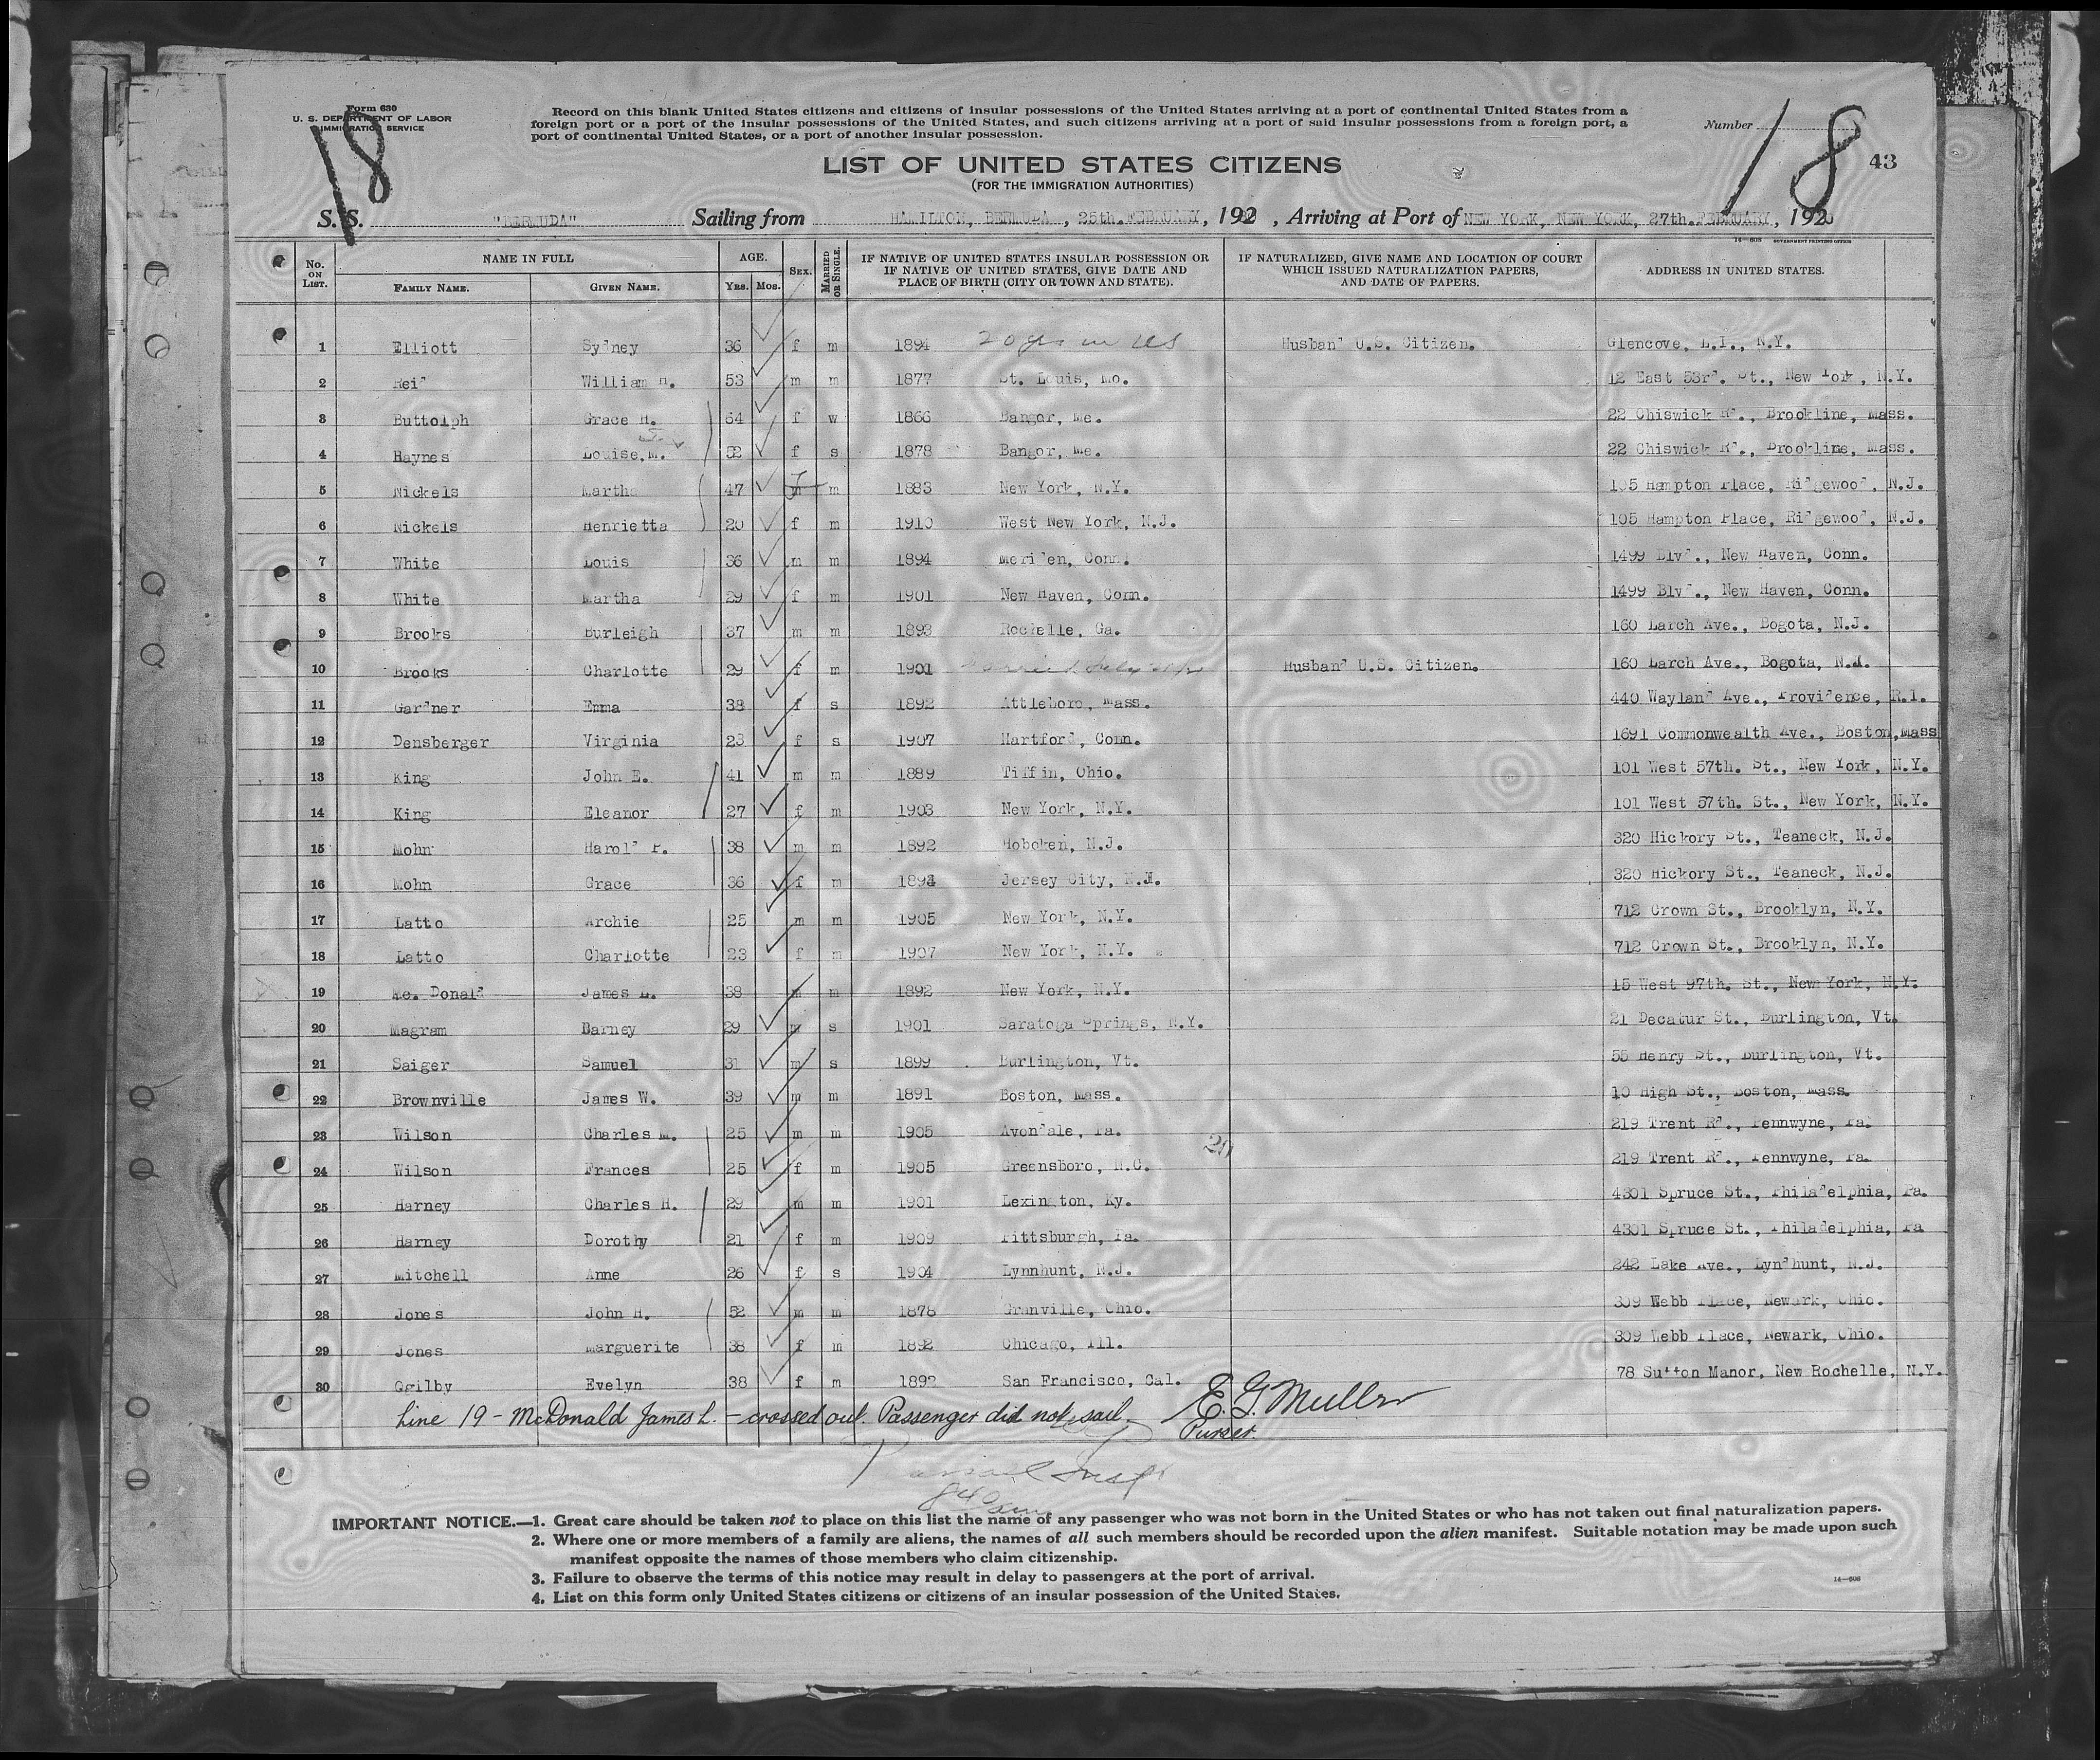 Form 630
U. S. DEPARTMENT OF LABOR
IMMIGRATION SERVICE
18
Record on this blank United States citizens and citizens of insular possessions of the United States arriving at a port of continental United States from a
foreign port or a port of the insular possessions of the United States, and such citizens arriving at a port of said insular possessions from a foreign port, a
port of continental United States, or a port of another insular possession.
Number
18
43
LIST OF UNITED STATES CITIZENS
(FOR THE IMMIGRATION AUTHORITIES)
S. S. "BERMUDA" Sailing from HAMILTON, BERMUDA, 25th. FEBRUARY, 192 , Arriving at Port of NEW YORK, NEW YORK, 27th. FEBRUARY, 192
14—608 GOVERNMENT PRINTING OFFICE
No. ON LIST. NAME IN FULL FAMILY NAME. GIVEN NAME. AGE. YRS. MOS. SEX. MARRIED OR SINGLE. IF NATIVE OF UNITED STATES INSULAR POSSESSION OR IF NATIVE OF UNITED STATES, GIVE DATE AND PLACE OF BIRTH (CITY OR TOWN AND STATE). IF NATURALIZED, GIVE NAME AND LOCATION OF COURT WHICH ISSUED NATURALIZATION PAPERS, AND DATE OF PAPERS. ADDRESS IN UNITED STATES.
1 Elliott Sydney 36 f m 1894 20 yrs in US Husband U.S. Citizen. Glencove, L.I., N.Y.
2 Reid William H. 53 m m 1877 St. Louis, Mo. 12 East 53rd. St., New York, N.Y.
3 Buttolph Grace H. 64 f w 1866 Bangor, Me. 22 Chiswick Rd., Brookline, Mass.
4 Haynes Louise, M. 52 f s 1878 Bangor, Me. 22 Chiswick Rd., Brookline, Mass.
5 Nickels Martha 47 f m 1883 New York, N.Y. 105 Hampton Place, Ridgewood, N.J.
6 Nickels Henrietta 20 f m 1910 West New York, N.J. 105 Hampton Place, Ridgewood, N.J.
7 White Louis 36 m m 1894 Meriden, Conn. 1499 Blvd., New Haven, Conn.
8 White Martha 29 f m 1901 New Haven, Conn. 1499 Blvd., New Haven, Conn.
9 Brooks Burleigh 37 m m 1893 Rochelle, Ga. 160 Larch Ave., Bogota, N.J.
10 Brooks Charlotte 29 f m 1901 Husband U.S. Citizen. 160 Larch Ave., Bogota, N.J.
11 Gardner Emma 38 f s 1892 Attleboro, Mass. 440 Wayland Ave., Providence, R.I.
12 Densberger Virginia 23 f s 1907 Hartford, Conn. 1691 Commonwealth Ave., Boston, Mass
13 King John E. 41 m m 1889 Tiffin, Ohio. 101 West 57th. St., New York, N.Y.
14 King Eleanor 27 f m 1903 New York, N.Y. 101 West 57th. St., New York, N.Y.
15 Mohn Harold P. 38 m m 1892 Hoboken, N.J. 320 Hickory St., Teaneck, N.J.
16 Mohn Grace 36 f m 1894 Jersey City, N.J. 320 Hickory St., Teaneck, N.J.
17 Latto Archie 25 m m 1905 New York, N.Y. 712 Crown St., Brooklyn, N.Y.
18 Latto Charlotte 23 f m 1907 New York, N.Y. 712 Crown St., Brooklyn, N.Y.
19 Mc. Donald James L. 38 m m 1892 New York, N.Y. 15 West 97th. St., New York, N.Y.
20 Magram Barney 29 m s 1901 Saratoga Springs, N.Y. 21 Decatur St., Burlington, Vt.
21 Saiger Samuel 31 m s 1899 Burlington, Vt. 55 Henry St., Burlington, Vt.
22 Brownville James W. 39 m m 1891 Boston, Mass. 10 High St., Boston, Mass.
23 Wilson Charles M. 25 m m 1905 Avondale, Pa. 219 Trent Rd., Pennwyne, Pa.
24 Wilson Frances 25 f m 1905 Greensboro, N.C. 219 Trent Rd., Pennwyne, Pa.
25 Harney Charles H. 29 m m 1901 Lexington, Ky. 4301 Spruce St., Philadelphia, Pa.
26 Harney Dorothy 21 f m 1909 Pittsburgh, Pa. 4301 Spruce St., Philadelphia, Pa
27 Mitchell Anne 26 f s 1904 Lynnhunt, N.J. 242 Lake Ave., Lyndhunt, N.J.
28 Jones John H. 52 m m 1878 Granville, Ohio. 309 Webb Place, Newark, Ohio.
29 Jones Marguerite 38 f m 1892 Chicago, Ill. 309 Webb Place, Newark, Ohio.
30 Ogilby Evelyn 38 f m 1892 San Francisco, Cal. 78 Sutton Manor, New Rochelle, N.Y.
Line 19 - McDonald James L. - crossed out. Passenger did not sail. E. G. Muller
Purser.
IMPORTANT NOTICE.—1. Great care should be taken not to place on this list the name of any passenger who was not born in the United States or who has not taken out final naturalization papers.
2. Where one or more members of a family are aliens, the names of all such members should be recorded upon the alien manifest. Suitable notation may be made upon such
manifest opposite the names of those members who claim citizenship.
3. Failure to observe the terms of this notice may result in delay to passengers at the port of arrival.
4. List on this form only United States citizens or citizens of an insular possession of the United States.
14—608